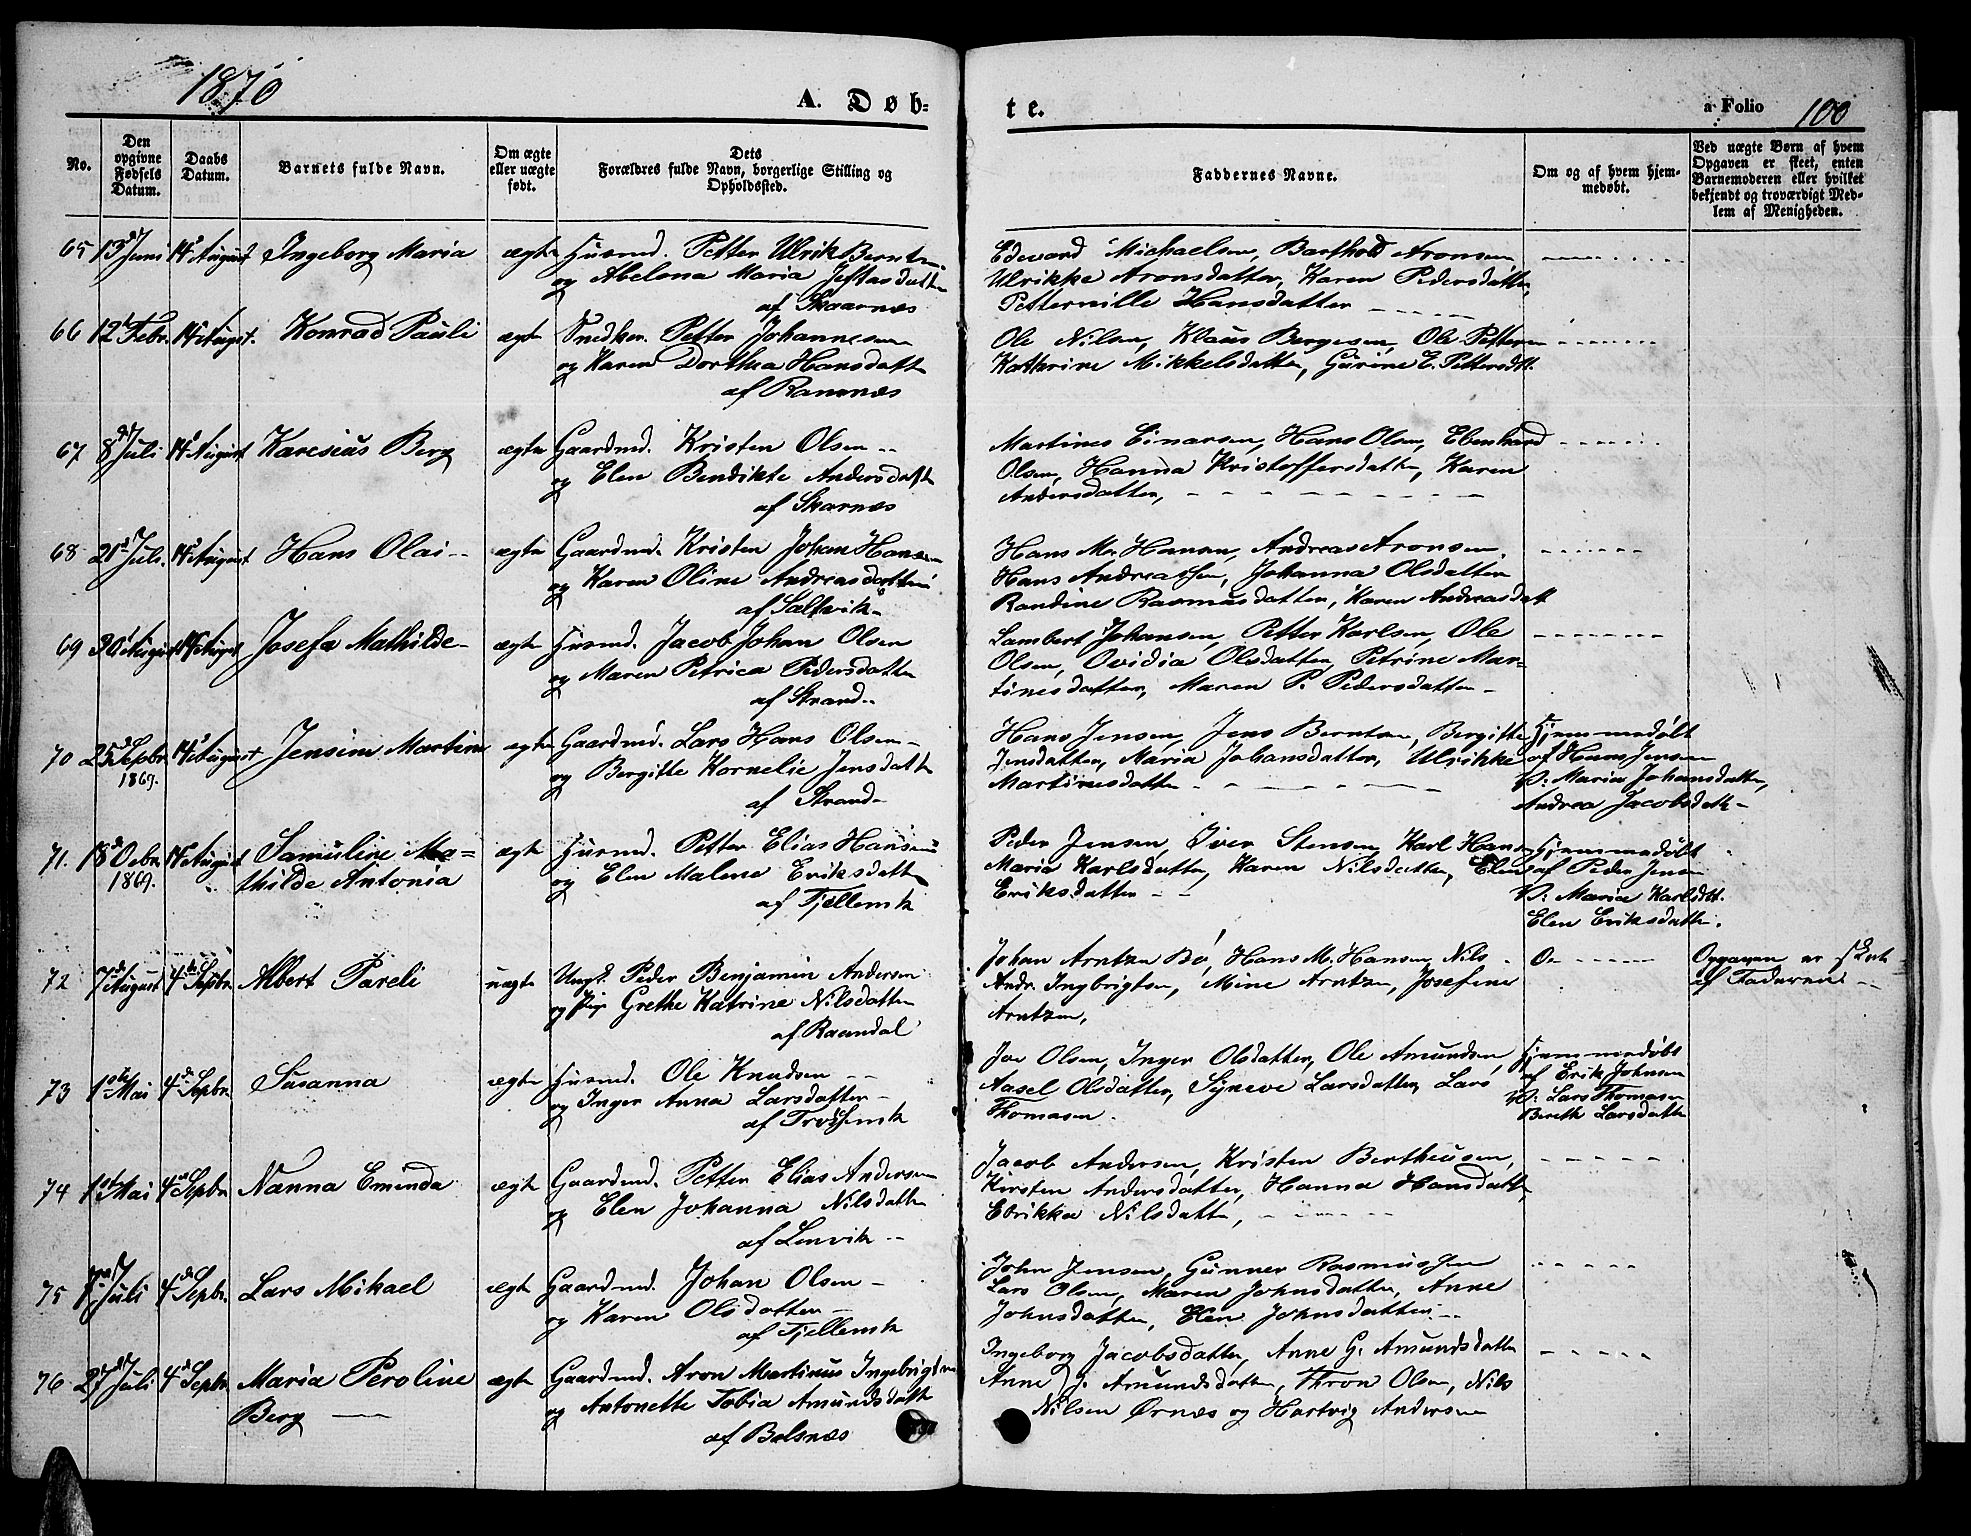 1870
A. Døb-
te.
a Folio 100
No.
Den opgivne Fødsels Datum.
Daabs Datum.
Barnets fulde Navn.
Om ægte eller uægte født.
Dets Forældres fulde Navn, borgerlige Stilling og Opholdssted.
Faddernes Navne.
Om og af hvem hjemmedøbt.
Ved uægte Børn af hvem Opgaven er skeet, enten Barnemoderen eller hvilket bekjendt og troværdigt Medlem af Menigheden.
65 13d Juni 14d August Ingeborg Maria ægte Husmd. Petter Ulrik Berntsen
og Abelona Maria Jeftasdatter
af Skaarnæs
Edevard Michaelsen, Barthold Aronsen
Ulrikke Aronsdatter, Karen Pedersdatter,
Petternille Hansdatter
66 12t Febr. 14d August. Konrad Pauli ægte Snedker. Petter Johannesen
og Karen Dorthea Hansdatt
af Ramnæs
Ole Nilsen, Klaus Bergesen, Ole Pettersen
Kathrine Mikkelsdatter, Gurine E. Pettersdt.
67 8d Juli 14d August Karesius Berg ægte Gaardmd. Kristen Olsen
og Elen Bendikte Andersdatter
af Skarnæs
Martines Einarsen, Hans Olsen, Ebenhard
Olsen, Hanna Kristoffersdatter, Karen
Andersdatter,
68 21d Juli. 14d August Hans Olai ægte Gaardmd. Kristen Johan Hansen
og Karen Oline Andreasdatter
af Saltvik
Hans M. Hansen, Andreas Aronsen.
Hans Andreassen, Johanna Olsdatter
Randine Rasmusdatter, Karen Andreasdatt
69 30t August 14d August Josefa Mathilde ægte Husmd. Jacob Johan Olsen
og Maren Petrica Pedersdatter
af Strand
Lambert Johansen, Petter Karlsen, Ole
Olsen, Ovidia Olsdatter, Petrine Mar-
tinesdatter, Maren P. Pedersdatter
70 25d Sepbr. 1869. 14d August Jensine Martine ægte Gaardmd. Lars Hans Olsen
og Bergitte Kornelie Jensdatt
af Strand
Hans Jensen, Jens Berntsen, Bergitte
Jensdatter, Maria Johansdatter, Ulrikke
Martinusdatter
Hjemmedøbt
af Hans Jensen
V: Maria Johansdatter,
Andrea Jacobsdatt
71. 18d Ocbr. 1869. 14d August Samuline Ma=
thilde Antonia
ægte Husmd. Petter Elias Hansen
og Elen Malene Eriksdatter
af Fjellemk
Peder Jensen, Iver Stensen, Karl Hansen
Maria Karlsdatter, Karen Nilsdatter, Elen
Eriksdatter
Hjemmedøbt
af Peder Jensen
V: Maria Karlsdt.
Elen Eriksdatter.
72 7d August 4de Sepbr. Albert Pareli uægte Ungk. Peder Benjamin Andersen
og Pige Grethe Katrine Nilsdatter
af Ramndal
Johan Arntzen Bø, Hans M. Hansen, Nils
Andr. Ingbrigtsen, Mine Arntzen, Josefine
Arntzen,
O
Opgaven er skeet
af Faderne
73 1ste Mai 4de Sepbr. Susanna ægte Husmd. Ole Knudsen
og Inger Anna Larsdatter
af Trollemk
Joe Olsen, Inger Olsdatter, Ole Amundsen,
Aasel Olsdatter, Syneve Larsdatter, Lars
Thomasen.
Hjemmedøbt
af Erik Johnsen
V: Lars Thomasen
Bereth Larsdatter
74 1ste Mai 4de Sepbr. Nanna Eminda ægte Gaardmd. Petter Elias Andersen
og Elen Johanna Nilsdatter
af Lenvik
Jacob Andersen, Kristen Bertheusen,
Kirsten Andersdatter, Hanna Hansdatt
Elrikka Nilsdatter,
75 7d Juli 4de Sepbr. Lars Mikael ægte Gaardmd. Johan Olsen
og Karen Olsdatter
af Fjellemk
John Jensen, Gunner Rasmussen
Lars Olsen, Maren Johnsdatter, Anne
Johnsdatter, Elen Johnsdatter
76 27d Juli 4de Sepbr. Maria Peroline
Berg
ægte Gaardmd. Aron Martinus Ingebrigtsen
og Antonette Tobia Amundsdatt
af Balsnæs
Ingeborg Jacobsdatter, Anne G. Amundsdatter
Anne J. Amundsdatter, Thron Olsen, Nils
Nilsen Ørnæs og Hartvig Andersen